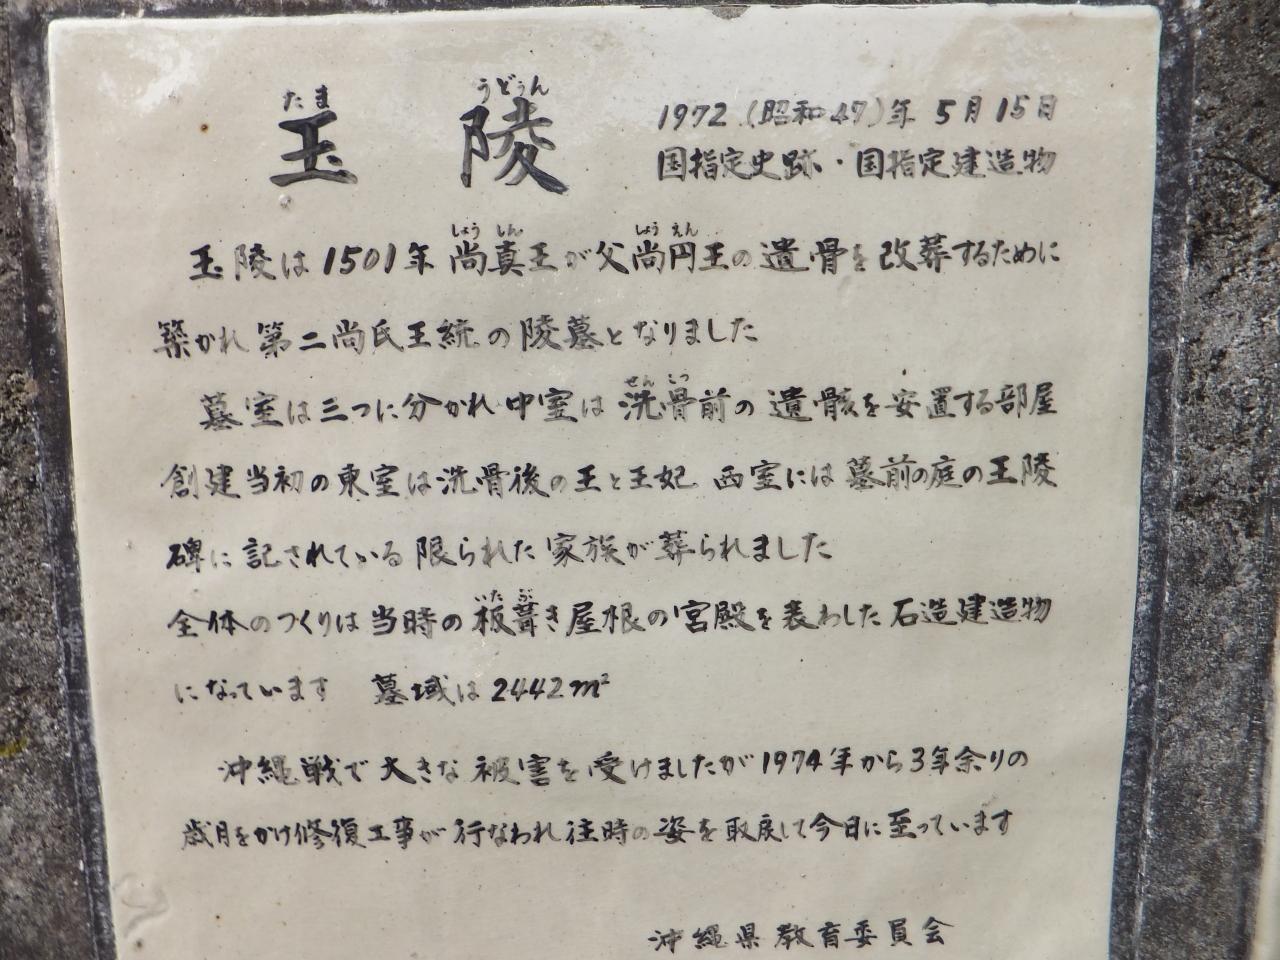 たま うどぅん
玉 陵
1972(昭和47)年 5月15日
国指定史跡・国指定建造物
しょう しん しょう えん
玉陵は1501年 尚真王が父尚円王の遺骨を改葬するために
築かれ 第二尚氏王統の陵墓となりました
せん こつ
墓室は三つに分かれ 中室は洗骨前の遺骸を安置する部屋
創建当初の東室は洗骨後の王と王妃 西室には墓前の庭の玉陵
碑に記されている限られた家族が葬られました
いた ぶ
全体のつくりは当時の板葺き屋根の宮殿を表わした石造建造物
になっています 墓域は2442m²
沖縄戦で大きな被害を受けましたが1974年から3年余りの
歳月をかけ修復工事が行なわれ往時の姿を取戻して今日に至っています
沖縄県教育委員会